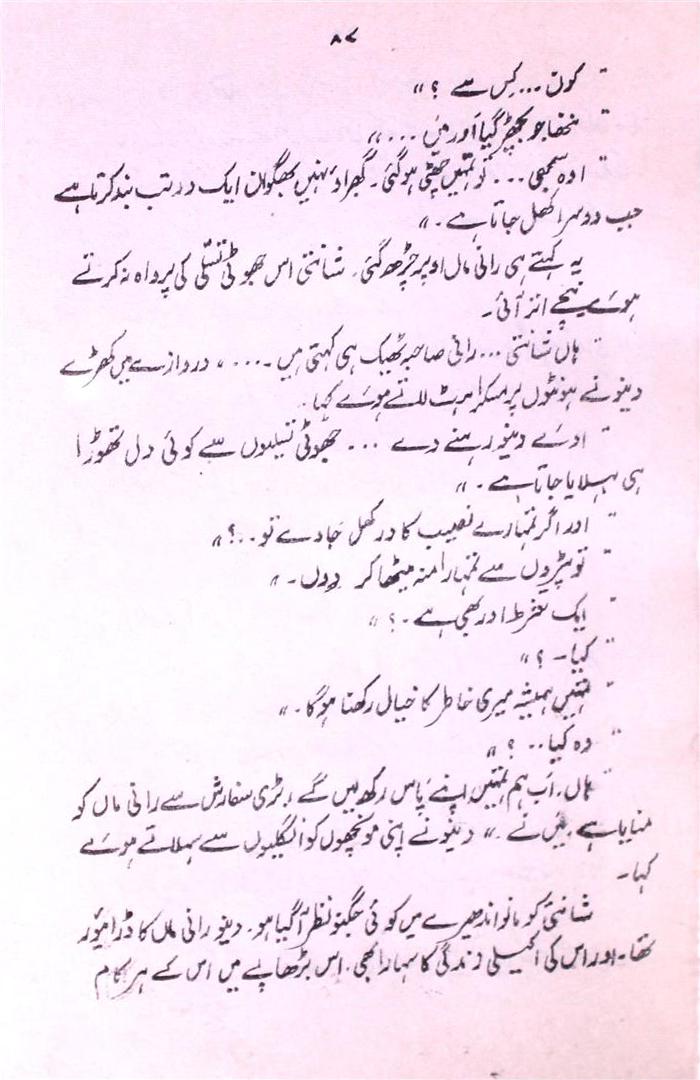 ۸۷
" کون... کِس سے ؟ "
" ننھا جو بچھڑ گیا اور میں ... "
" اوہ سمجھی ... تو تمہیں چھٹی ہوگئی ۔ گھبراؤ نہیں بھگوان ایک در تب بند کرتا ہے
جب دوسرا کھل جاتا ہے ۔ "
یہ کہتے ہی رانی ماں اوپر چڑھ گئی ۔ شانتی اس جھوٹی تسلّی کی پرواہ نہ کرتے
ہوئے نیچے اتر آئی ۔
" ہاں شانتی ... رانی صاحبہ ٹھیک ہی کہتی ہیں ۔ ... " دروازے میں کھڑے
دینو نے ہونٹوں پر مسکراہٹ لاتے ہوئے کہا .
" ارے دینو رہنے دے ... جھوٹی تسلیوں سے کوئی دل تھوڑا
ہی بہلایا جاتا ہے ۔ "
" اور اگر تمہارے نصیب کا در کھل جاوے تو ..؟ "
" تو پیڑوں سے تمہارا منہ میٹھا کر دوں ۔ "
" ایک شرط اور بھی ہے ۔ ؟ "
" کیا ۔ ؟ "
" تمہیں ہمیشہ میری خاطر کا خیال رکھنا ہوگا ۔ "
" وہ کیا .. ؟ "
" ہاں . اَب ہم تمہیں اپنے پاس رکھ لیں گے ، بڑی سفارش سے رانی ماں کو
منایا ہے ، میں نے ۔ " دینو نے اپنی مونچھوں کو انگلیوں سے سہلاتے ہوئے
کہا ۔
شانتی کو مانو اندھیرے میں کوئی جگنو نظر آگیا ہو . دینو رانی ماں کا ڈرائیور
تھا ۔ اور اس کی اکیلی زندگی کا سہارا بھی . اس بڑھاپے میں اس کے ہر کام